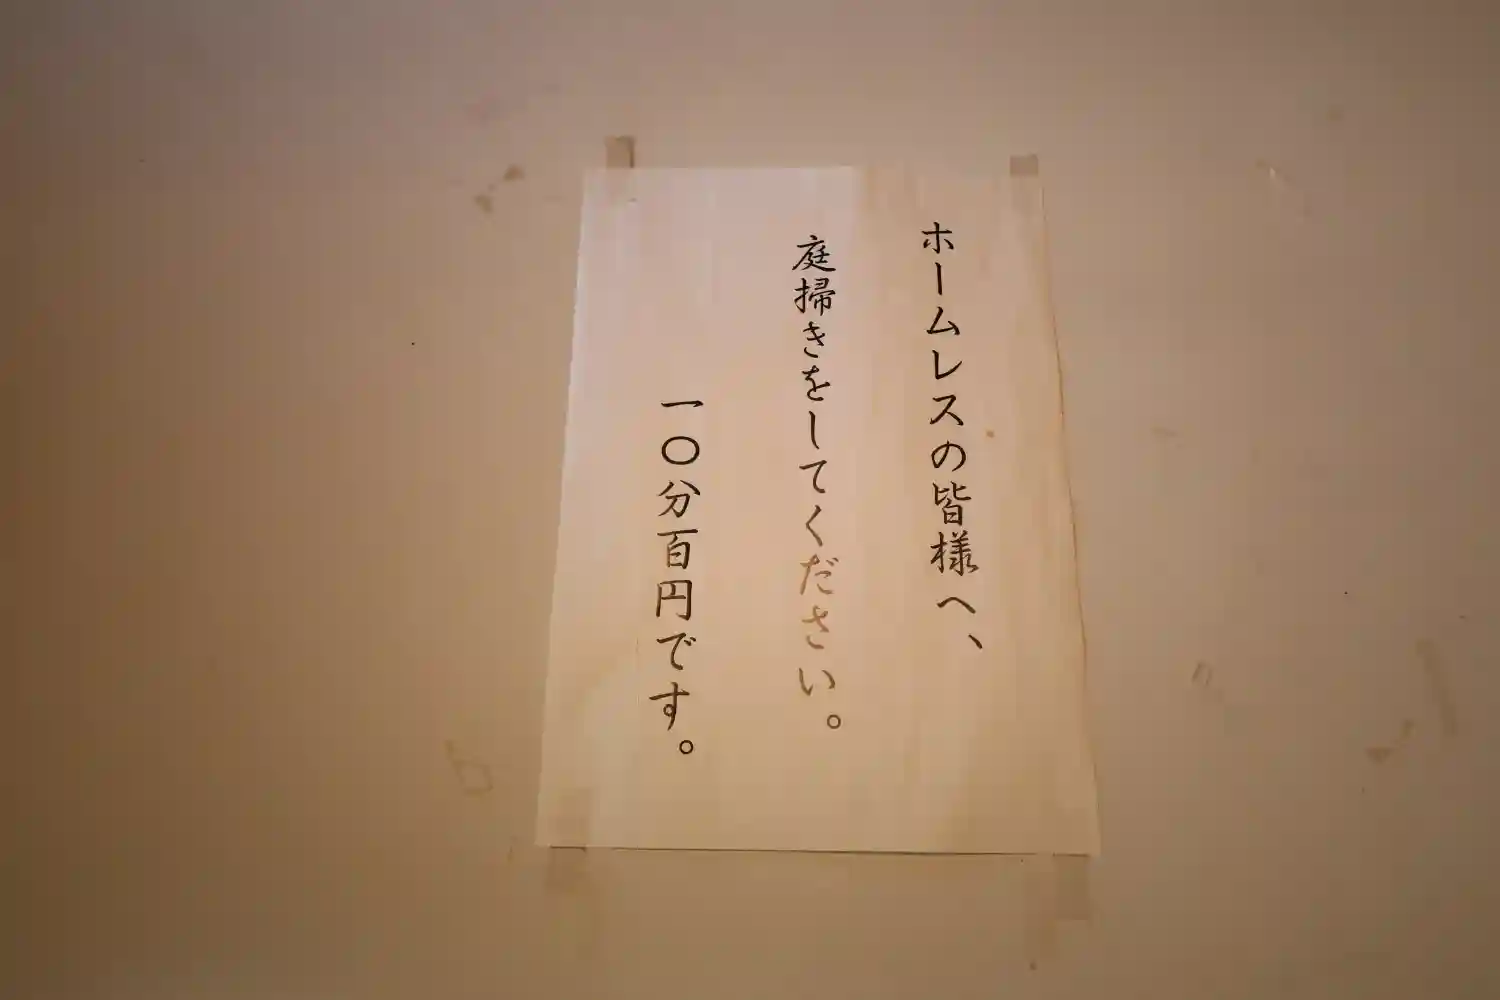 ホームレスの皆様へ、
庭掃きをしてください。
一〇分百円です。